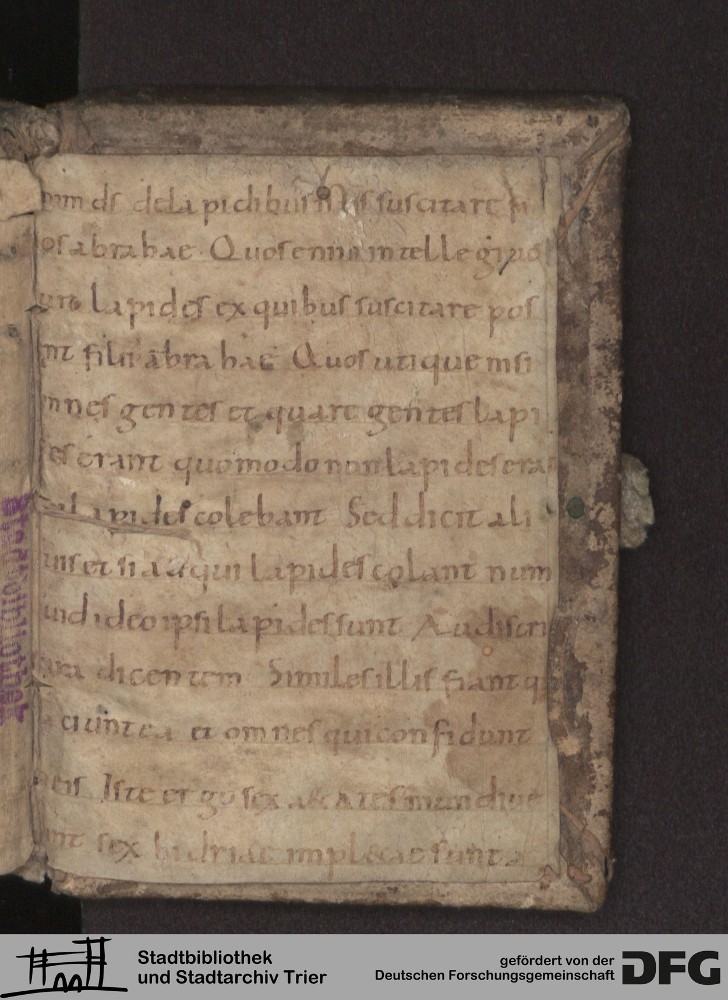 num ds delapidibus istis suscitare fi
os abrahae Quos enim intellegi uo
unt lapides ex quibus suscitare pos
nt filii abrahae Quos utique nisi
mnes gentes et quare gentes lapi
des erant quomodo non lapides era
lapides colebant Sed dicit ali
uis et si aliqui lapides colant num
uid ideo ipsi lapides sunt Audi scri
ura dicentem Similes illis fiant q
aciunt ea et omnes qui confidunt
eis Iste ergo sex aetates mundi ue
nt sex hidriae impletae sunt a
Stadtbibliothek
Stadtbibliothek
und Stadtarchiv Trier
gefördert von der
Deutschen Forschungsgemeinschaft
DFG